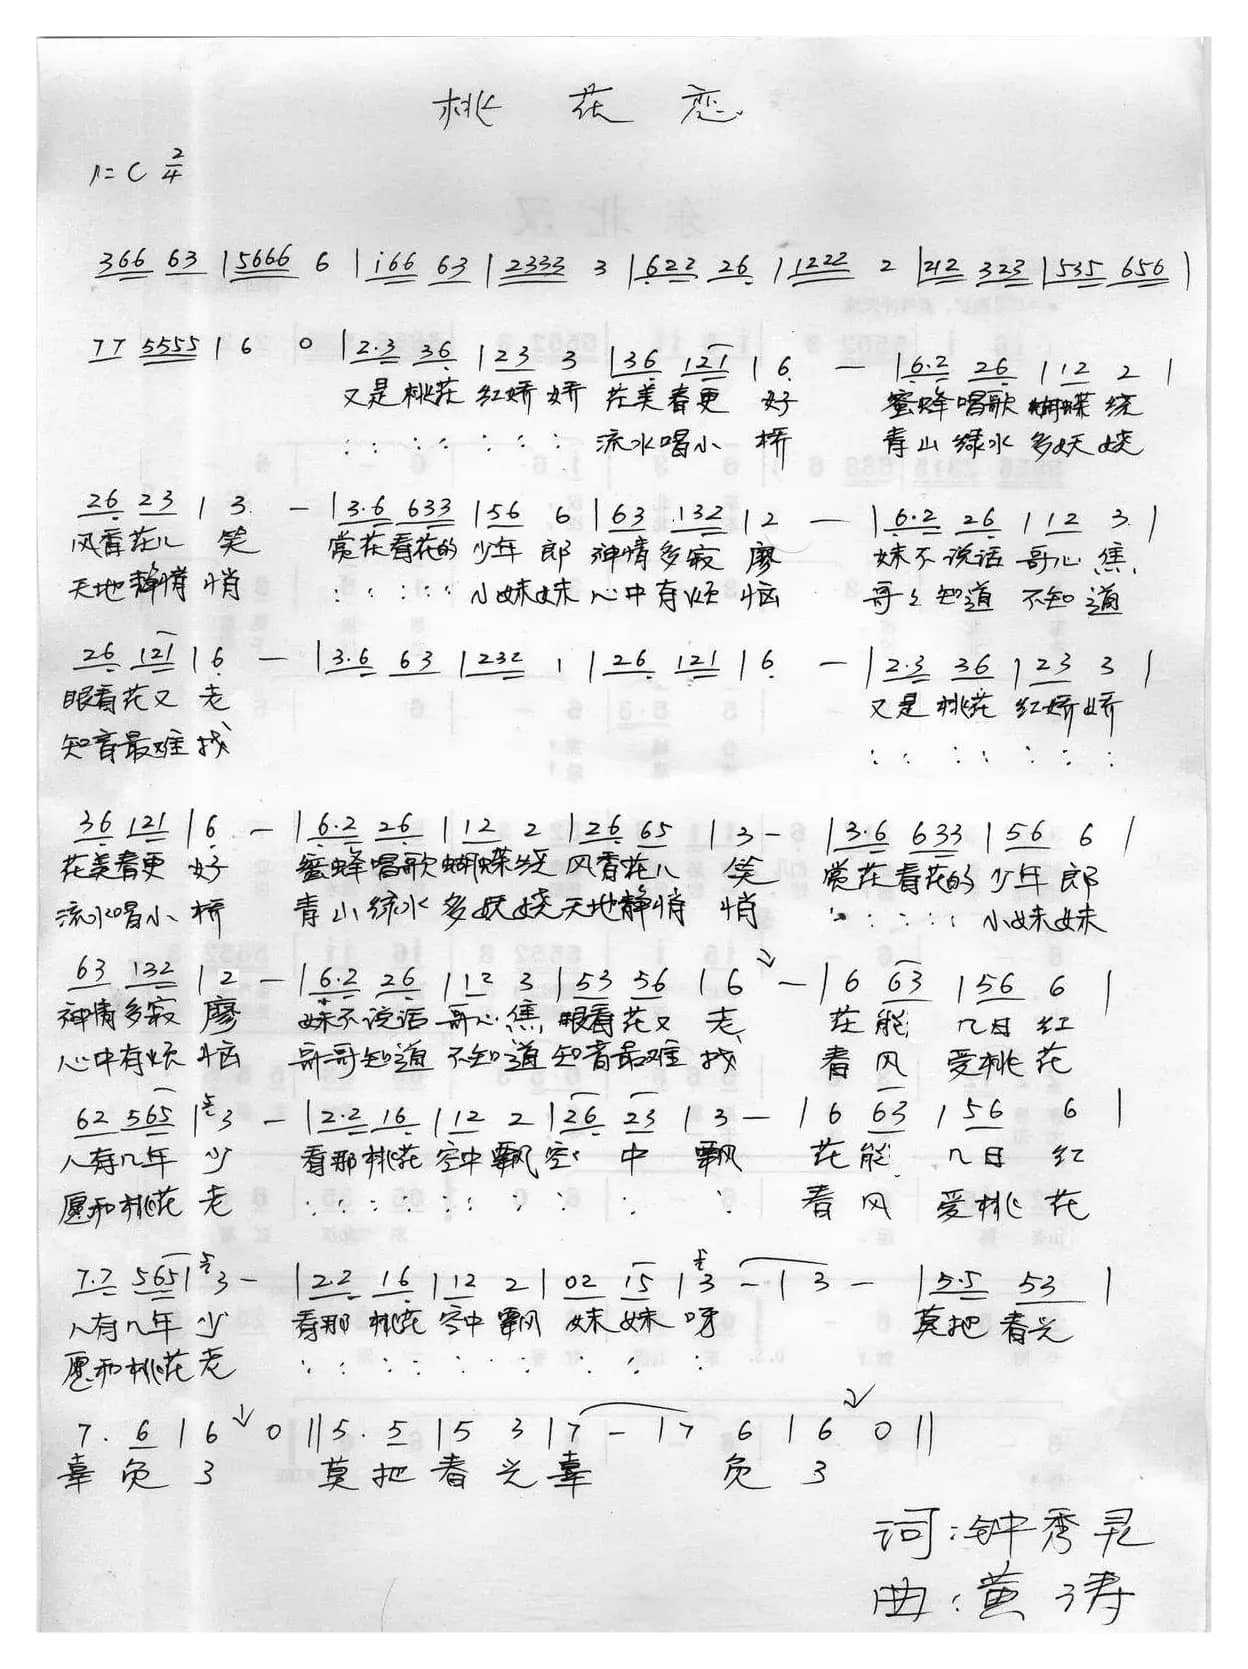 桃花恋
1=C 2/4
366 63 | 5666 6 | i66 63 | 2333 3 | 622 26 | 1222 2 | 212 323 | 535 656 |
77 5555 | 6 0 | 2·3 36 | 23 3 | 36 121 | 6 - | 6·2 26 | 12 2 |
又是桃花 红娇娇 花美春更 好 蜜蜂唱歌 蝴蝶绕
: : : : : : : 流水唱小 桥 青山绿水 多妖娆
26 23 | 3 - | 3·6 633 | 56 6 | 63 132 | 2 - | 6·2 26 | 12 3 |
风香花儿 笑 赏花看花的 少年郎 神情多寂 廖 妹不说话 哥心焦
天地静悄 悄 : : : : : 小妹妹 心中有烦 恼 哥々知道 不知道
26 121 | 6 - | 3·6 63 | 232 1 | 26 121 | 6 - | 2·3 36 | 23 3 |
眼看花又 老 又是桃花 红娇娇
知音最难 找 : : : : : : :
36 121 | 6 - | 6·2 26 | 12 2 | 26 65 | 3 - | 3·6 633 | 56 6 |
花美春更 好 蜜蜂唱歌 蝴蝶绕 风香花儿 笑 赏花看花的 少年郎
流水唱小 桥 青山绿水 多妖娆 天地静悄 悄 : : : : : 小妹妹
63 132 | 2 - | 6·2 26 | 12 3 | 53 56 | 6 - | 6 63 | 56 6 |
神情多寂 廖 妹不说话 哥心焦 眼看花又 老 花能 几日红
心中有烦 恼 哥哥知道 不知道 知音最难 找 春风 爱桃花
62 565 | 3 - | 2·2 16 | 12 2 | 26 23 | 3 - | 6 63 | 56 6 |
人有几年 少 看那桃花 空中飘 空中 飘 花能 几日红
愿和桃花 老 : : : : : : : : : : 春风 爱桃花
7·7 565 | 3 - | 2·2 16 | 12 2 | 02 15 | 3 - | 3 - | 5·5 53 |
人有几年 少 看那桃花 空中飘 妹妹呀 莫把春光
愿和桃花 老 : : : : : : : : : :
7· 6 | 6 0 || 5· 5 | 5 3 | 7 - | 7 6 | 6 0 ||
辜负了 莫把春光辜 负了
词:钟秀灵
曲:黄涛